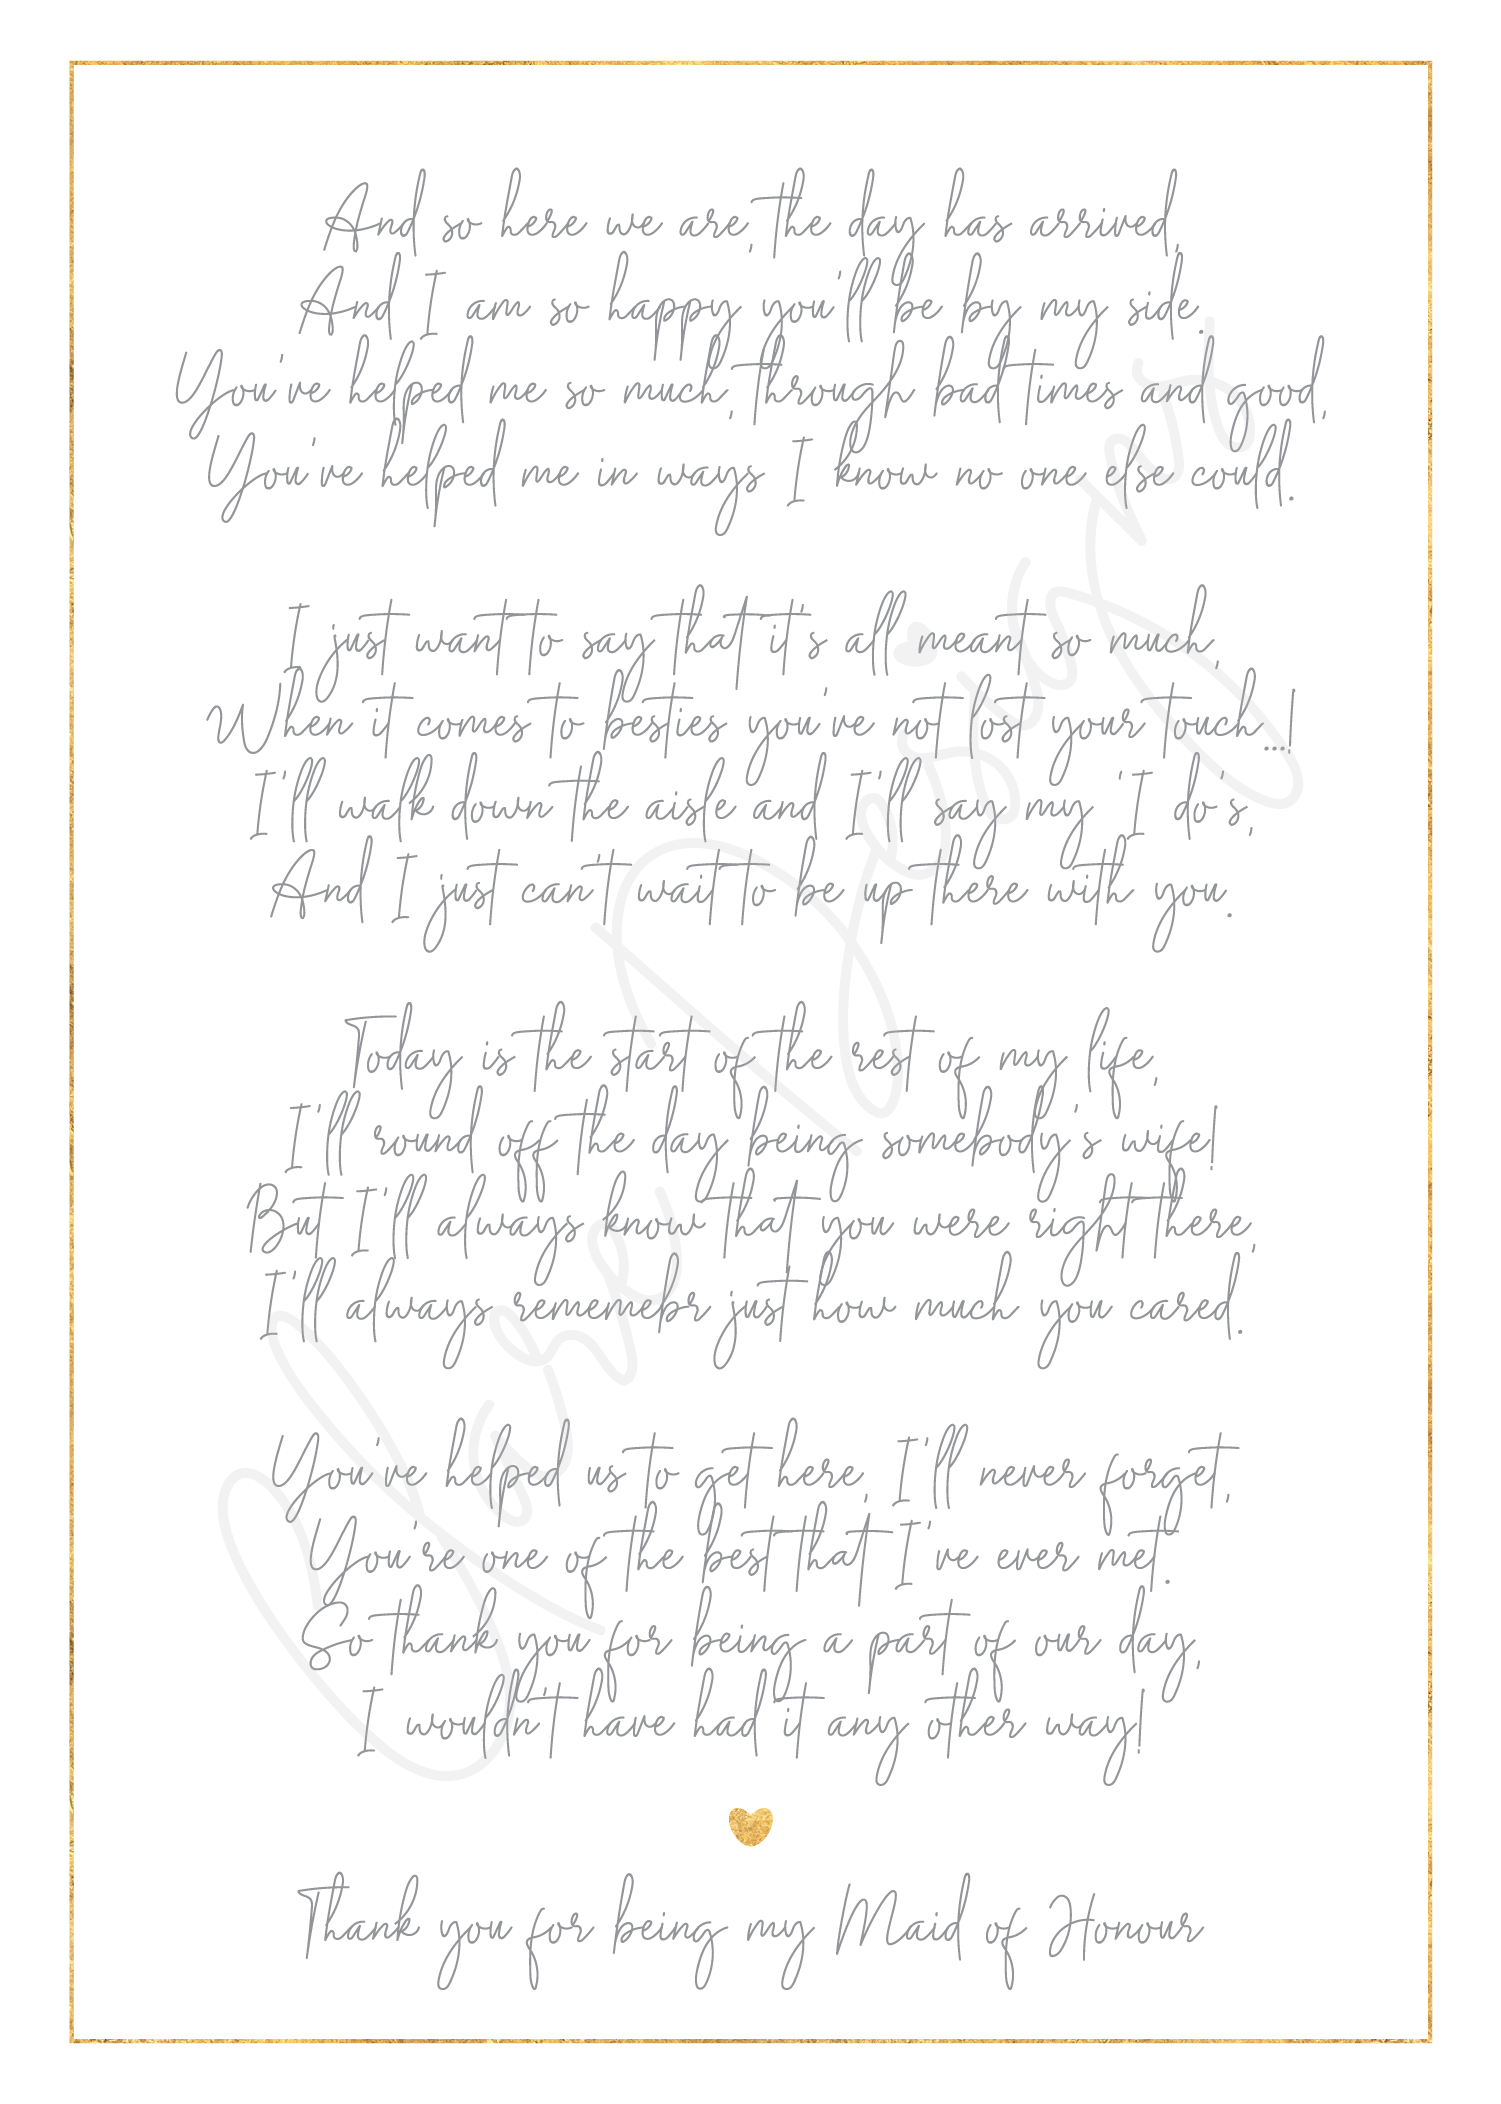 And so here we are, the day has arrived,
And I am so happy you'll be by my side.
You've helped me so much, through bad times and good,
You've helped me in ways I know no one else could.
I just want to say that it's all meant so much,
When it comes to besties you've not lost your touch...!
I'll walk down the aisle and I'll say my 'I do's,
And I just can't wait to be up there with you.
Today is the start of the rest of my life,
I'll round off the day being somebody's wife!
But I'll always know that you were right there,
I'll always rememebr just how much you cared.
You've helped us to get here, I'll never forget,
You're one of the best that I've ever met.
So thank you for being a part of our day,
I wouldn't have had it any other way!
Thank you for being my Maid of Honour
Clare Designs